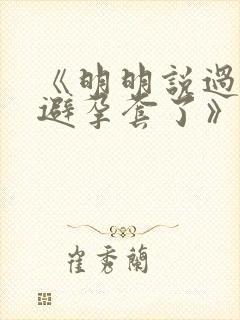 《明明説過
避孕套了》
崔秀蘭